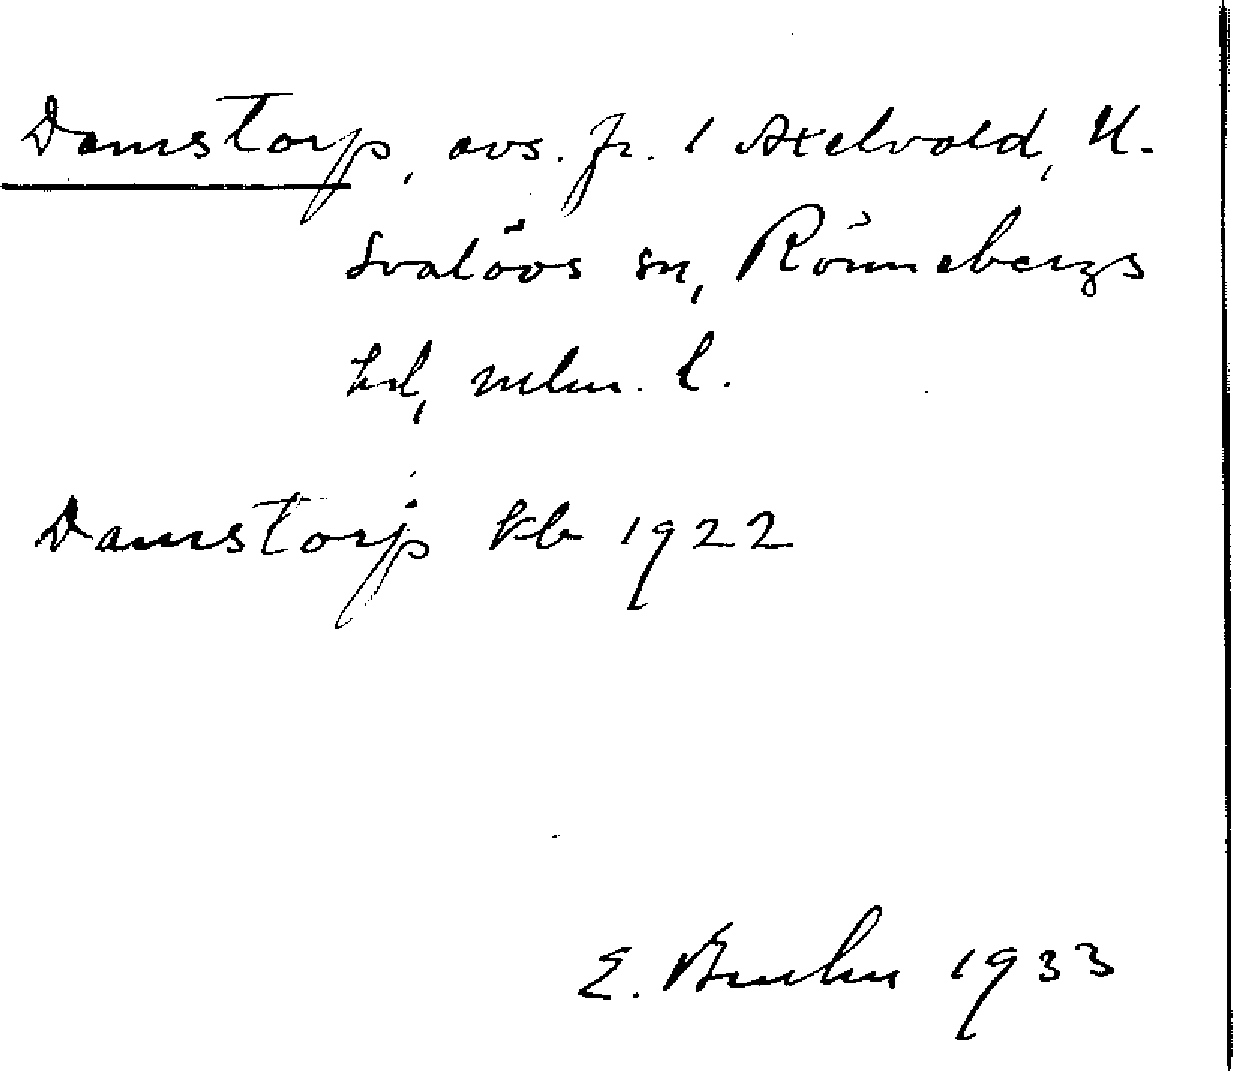 Damstorp, avs. fr. 1 Axelvold, N.
Svalövs sn, Rönnebergs
hd, mlm. l.
Damstorp kb 1922
E. Bruhn 1933